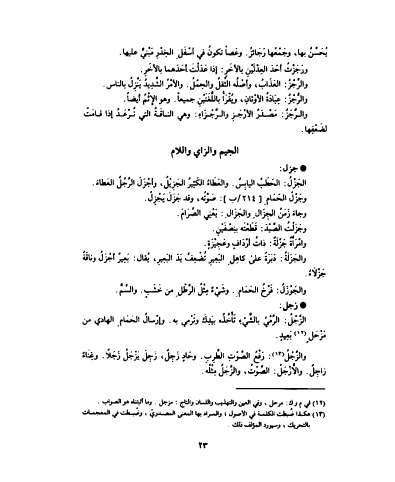 يُحَسَّنُ بها، وجَمْعُها رَجَائِزُ. وعَصاً تكونُ في أسْفَلِ الخِدْرِ مَبْنِيٌّ عليها.
ورَجَزْتُ أحَدَ العِدْلَيْنِ بالآخَرِ: إذا عَدَلْتَ أحَدَهما بالآخَرِ.
والرِّجْزُ: العَذَابُ، وأصْلُه الثِّقْلُ والحِمْلُ. والأمْرُ الشَّدِيدُ يَنْزِلُ بالناس.
والرُّجْزُ: عِبَادَةُ الأوْثَانِ، ويُقْرَأُ باللُّغَتَيْنِ جميعاً. وهو الإثْمُ أيضاً.
والرَّجَزُ: مَصْدَرُ الأرْجَزِ والرَّجْزَاءِ: وهي الناقَةُ التي تُرْعَدُ إذا قامَتْ
لضَعْفِها.
الجيم والزاي واللام
● جزل:
الجَزْلُ: الحَطَبُ اليابِسُ. والعَطَاءُ الكَثِيرُ الجَزِيْلُ، وأجْزَلَ الرَّجُلُ العَطَاءَ.
وجَزْلُ الحَمَامِ [ ٢١٤/ب ]: صَوْتُه، وقد جَزَلَ يَجْزِلُ.
وجاءَ زَمَنُ الجِزَالِ والجَزَالِ: يَعْنِي الصِّرَامَ.
وجَزَلْتُ الصَّيْدَ: قَطَعْتَه بنِصْفَيْنِ.
وامْرَأَةٌ جَزْلَةٌ: ذاتُ أرْدَافٍ وعَجِيْزَةٍ.
والجَزَلَةُ: دَبَرَةٌ على كاهِلِ البَعِيرِ تُضْعِفُ يَدَ البَعِيرِ، يُقال: بَعِيرٌ أجْزَلُ وناقَةٌ
جَزْلَاءُ.
والجَوْزَلُ: فَرْخُ الحَمَامِ. وشَيْءٌ مِثْلُ الرَّطْلِ من خَشَبٍ. والسَّمُّ.
● زجل:
الزَّجْلُ: الرَّمْيُ بالشَّيْءِ تَأْخُذُه بيَدِكَ وتَرْمي به. وإرْسالُ الحَمَامِ الهادي من
مَزْجَلٍ(١٢) بَعِيدٍ.
والزَّجْلُ(١٣): رَفْعُ الصَّوْتِ الطَّرِبِ. وحَادٍ زَجِلٌ، زَجِلَ يَزْجَلُ زَجَلاً. وغِنَاءٌ
زَاجِلٌ. والأُزْجُلُ: الصَّوْتُ، والزَّجْلُ مِثْلُه.
(١٢) في م و ك: مرحل ، وفي العين والتهذيب واللسان والتاج : مزجل . وما أثبتناه هو الصواب .
(١٣) هكذا ضُبطت الكلمة في الأصول ؛ والمراد بها المعنى المصدريّ ، وضُبطت في المعجمات
بالتحريك ، وسيورد المؤلف ذلك .
٢٣